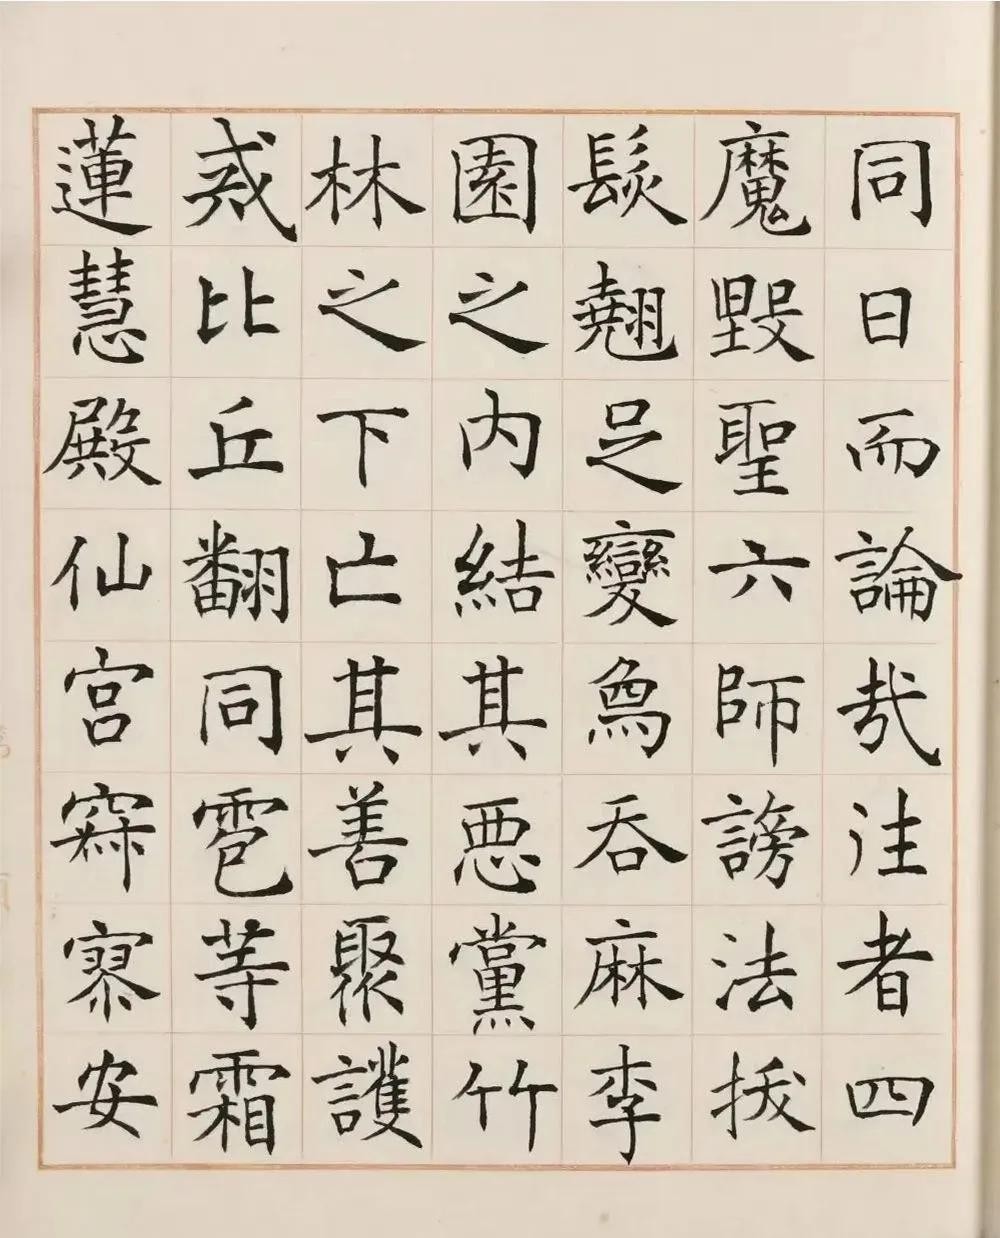 同日而論哉往者四
魔毀聖六師謗法拔
髮翹足變象吞麻李
園之内結其惡黨竹
林之下亡其善聚護
戒比丘翻同雹等霜
蓮慧殿仙宮寂寥安